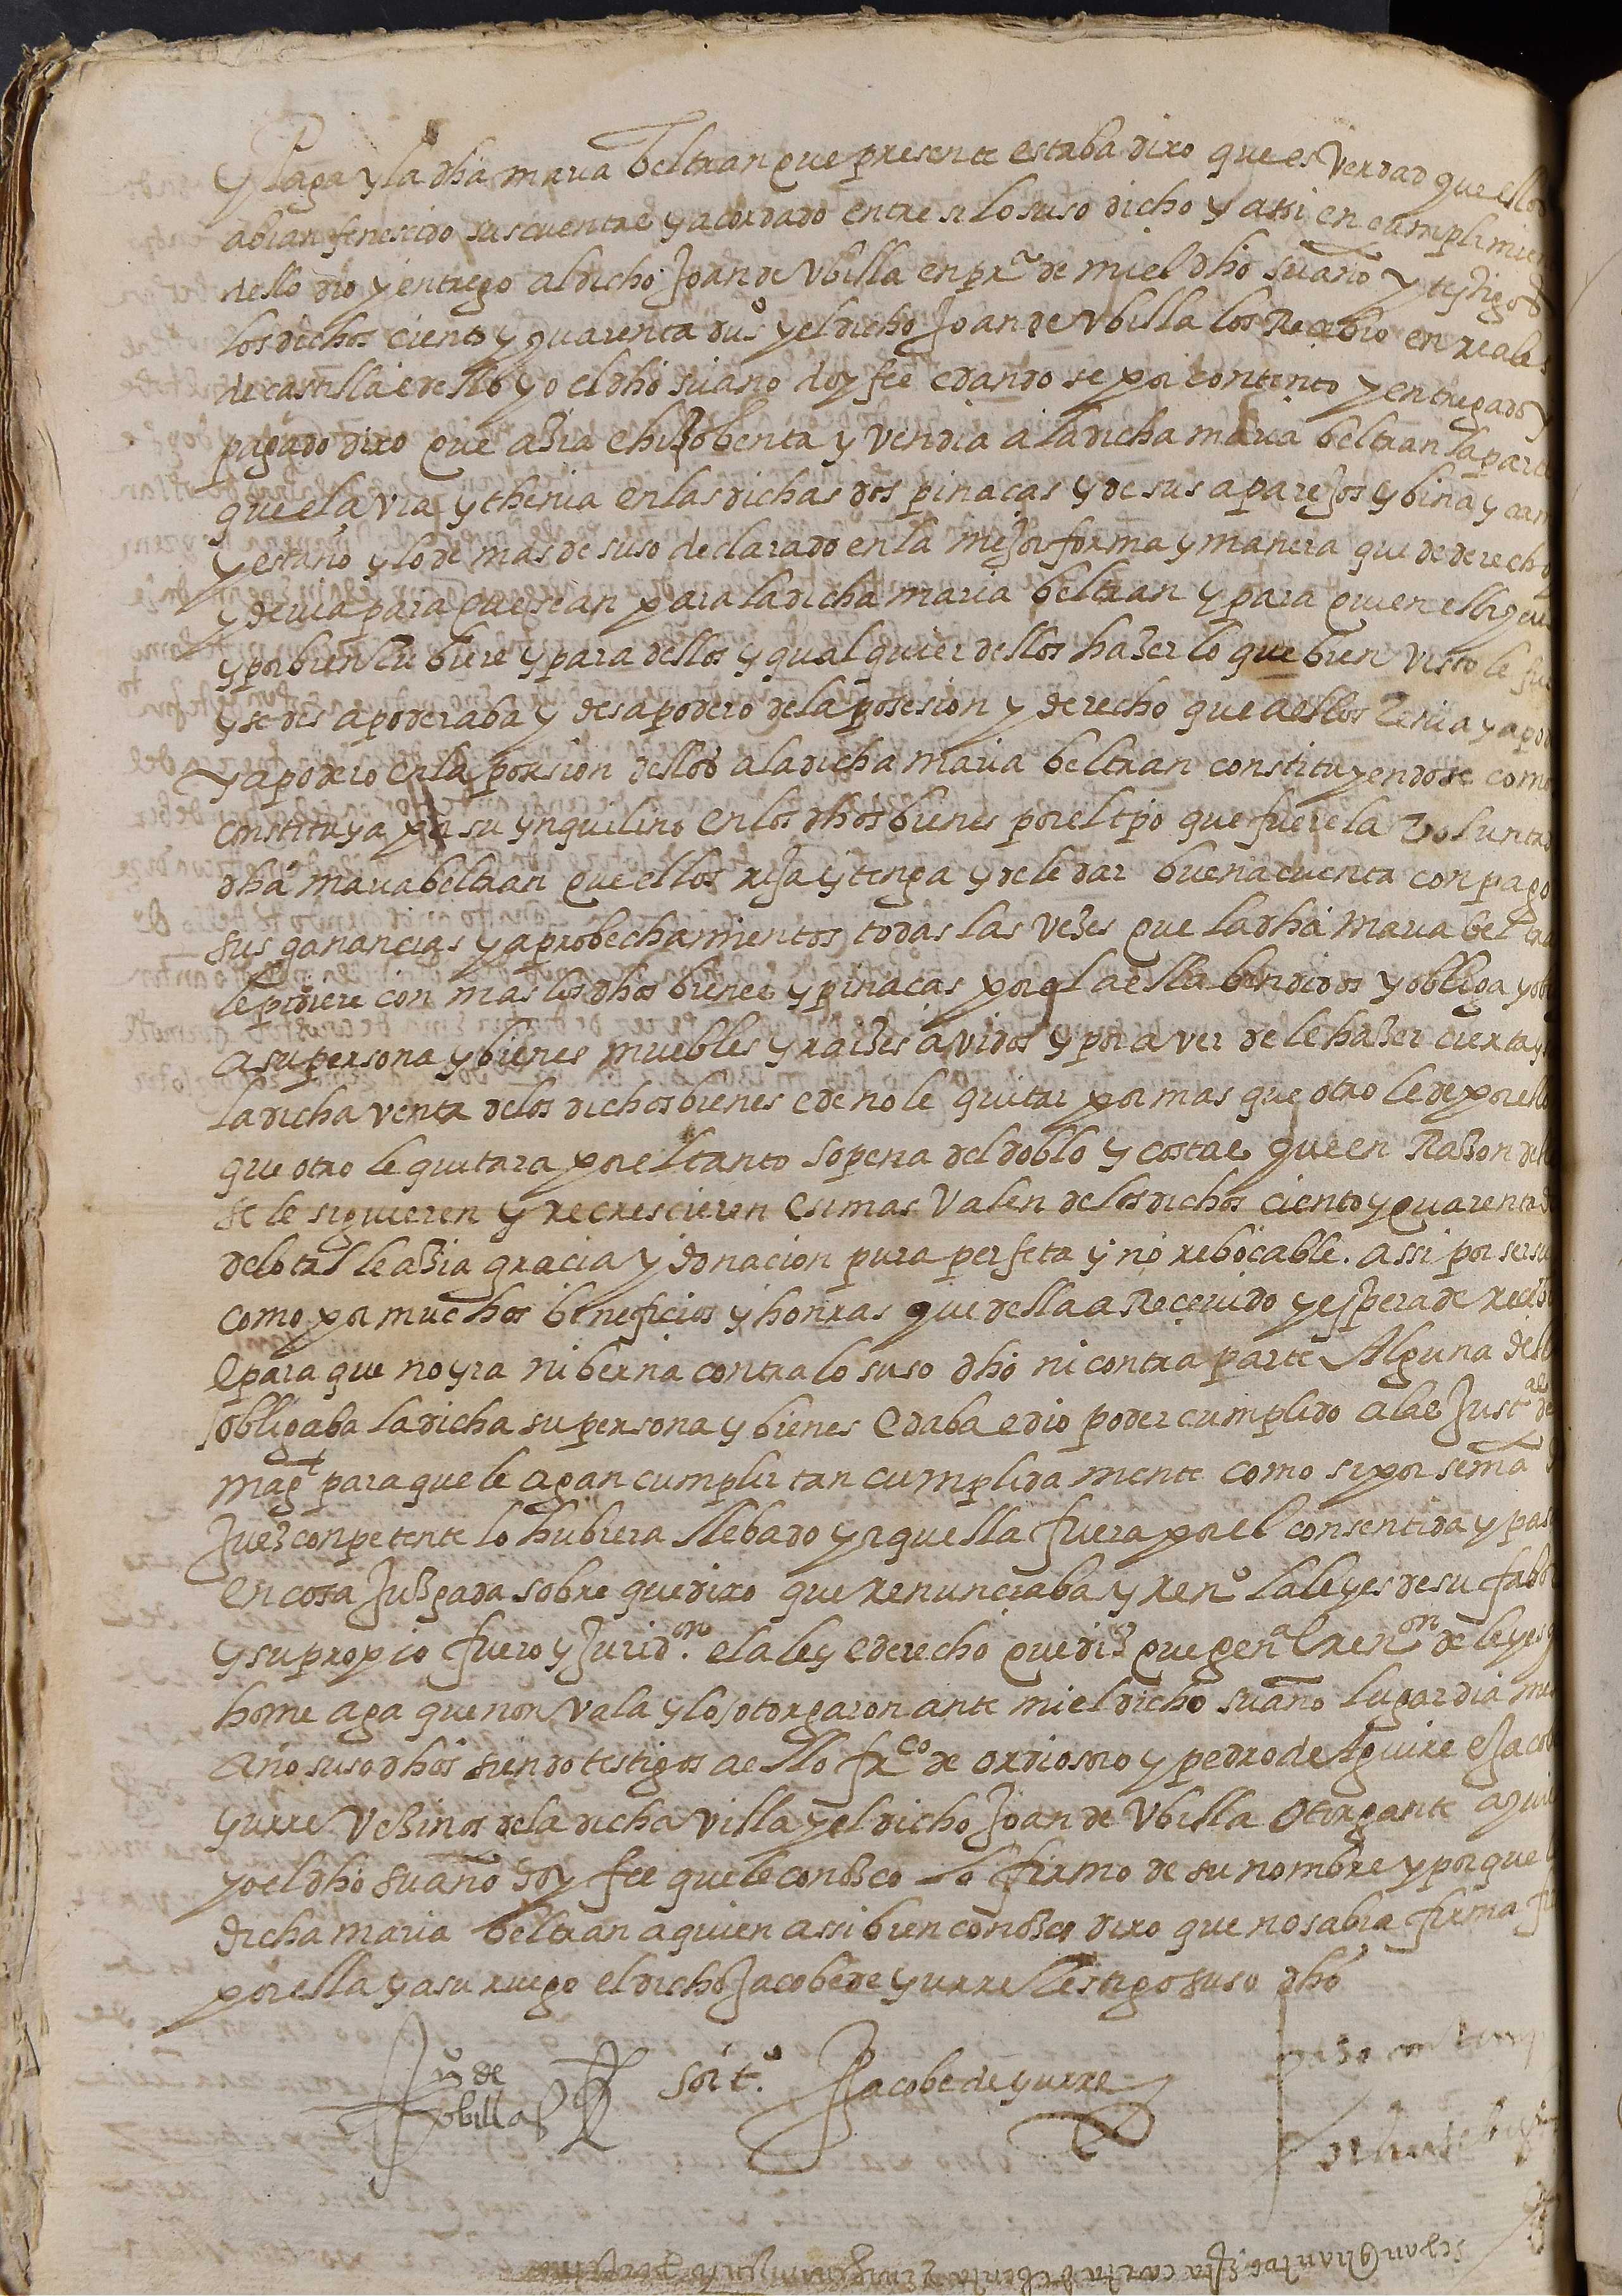 y Paga y la dha maria beltran que presente estaba dixo que es Verdad que ellos
abian fenescido sus cuentas y acordado entre si lo suso dicho y assi en cumplimien
dello dio y entrego al dicho Joan de Vbilla en prª de mi el dho suano y testigos
los dichos ciento y quarenta dus y el dicho Joan de Vbilla los Recibio en reales
de castilla e dello yo el dho suano doy fee e dando se por contento y entregado y
pagado dixo que azia e hizo benta y vendia a la dicha maria beltran la parte
que el avia y thenia en las dichas dos pinaças y de sus aparejos y bina y
y estaño y lo de mas de suso declarado en la mejor forma y manera que de derecho
y devia para que sean para la dicha maria beltran y para quien ella
y por bien tubiere y para dellos y qualquier dellos hazer lo que bien visto le fue
y se desapoderaba y desapodero de la posesion y derecho que a ellos tenia y apo
y apodero en la posesion dellos a la dicha maria beltran constituyendose como
constituya por su ynquilino en los dhos bienes por el tpo que fuere la voluntad
dha maria beltran que ellos rija y tenga y de le dar buena cuenta con pago
sus ganancias y aprobechamientos todas las vezes que la dha maria beltran
le pidiere con mas los dhos bienes y pinaças por el a ella bendidos y obliga y ob
a su persona y bienes muebles y raizes avidos y por aver de le hazer cierta y
la dicha venta de los dichos bienes e de no le quitar por mas que otro le de por ello
que otro le quitara por el tanto so pena del doblo y costas que en Razon dello
se le siguieren y recrescieren e si mas valen de los dichos ciento y quarenta d
de lo tal le azia gracia y donacion pura perfeta y no rebocable. assi por ser su
como por muchos beneficios y honras que della a Recevido y espera de recib
e para que no yra ni berna contra lo suso dho ni contra parte Alguna dello
obligaba la dicha su persona y bienes e daba e dio poder cumplido a las Justas de
magt para que le agan cumplir tan cumplida mente como si por sema
Juez conpetente lo hubiera llebado y aquella fuera por el consentida y pas
en cosa Juzgada sobre que dixo que renunciaba y reno la leyes de su fabor
y su propio fuero y Juridon. e la ley e derecho que diz que genal renon de leyes q
home aga que non vala y lo otorgaron ante mi el dicho suano lugar dia mes
año suso dhos siendo testigos a ello frco de ordiosolo y pedro de Aguirre e Jacobe
yurre Vezinos de la dicha villa y el dicho Joan de Vbilla otorgante a quien
yo el dho suano doy fee que le conozco lo firmo de su nombre y por que la
dicha maria beltran a quien assi bien conozco dixo que no sabia firma fir
por ella y a su ruego el dicho Jacobe de yurre testigo suso dho
Juº de
vbilla
por tº.
Jacobe de yurre